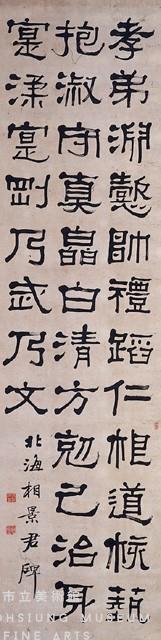 孝弟淵懿帥禮蹈仁根道核蓺
抱淑守真皛白清方剋己治身
寔渘寔剛乃武乃文
北海相景君碑
市立美術館
OHSIUNG MUSEUM
FINE ARTS